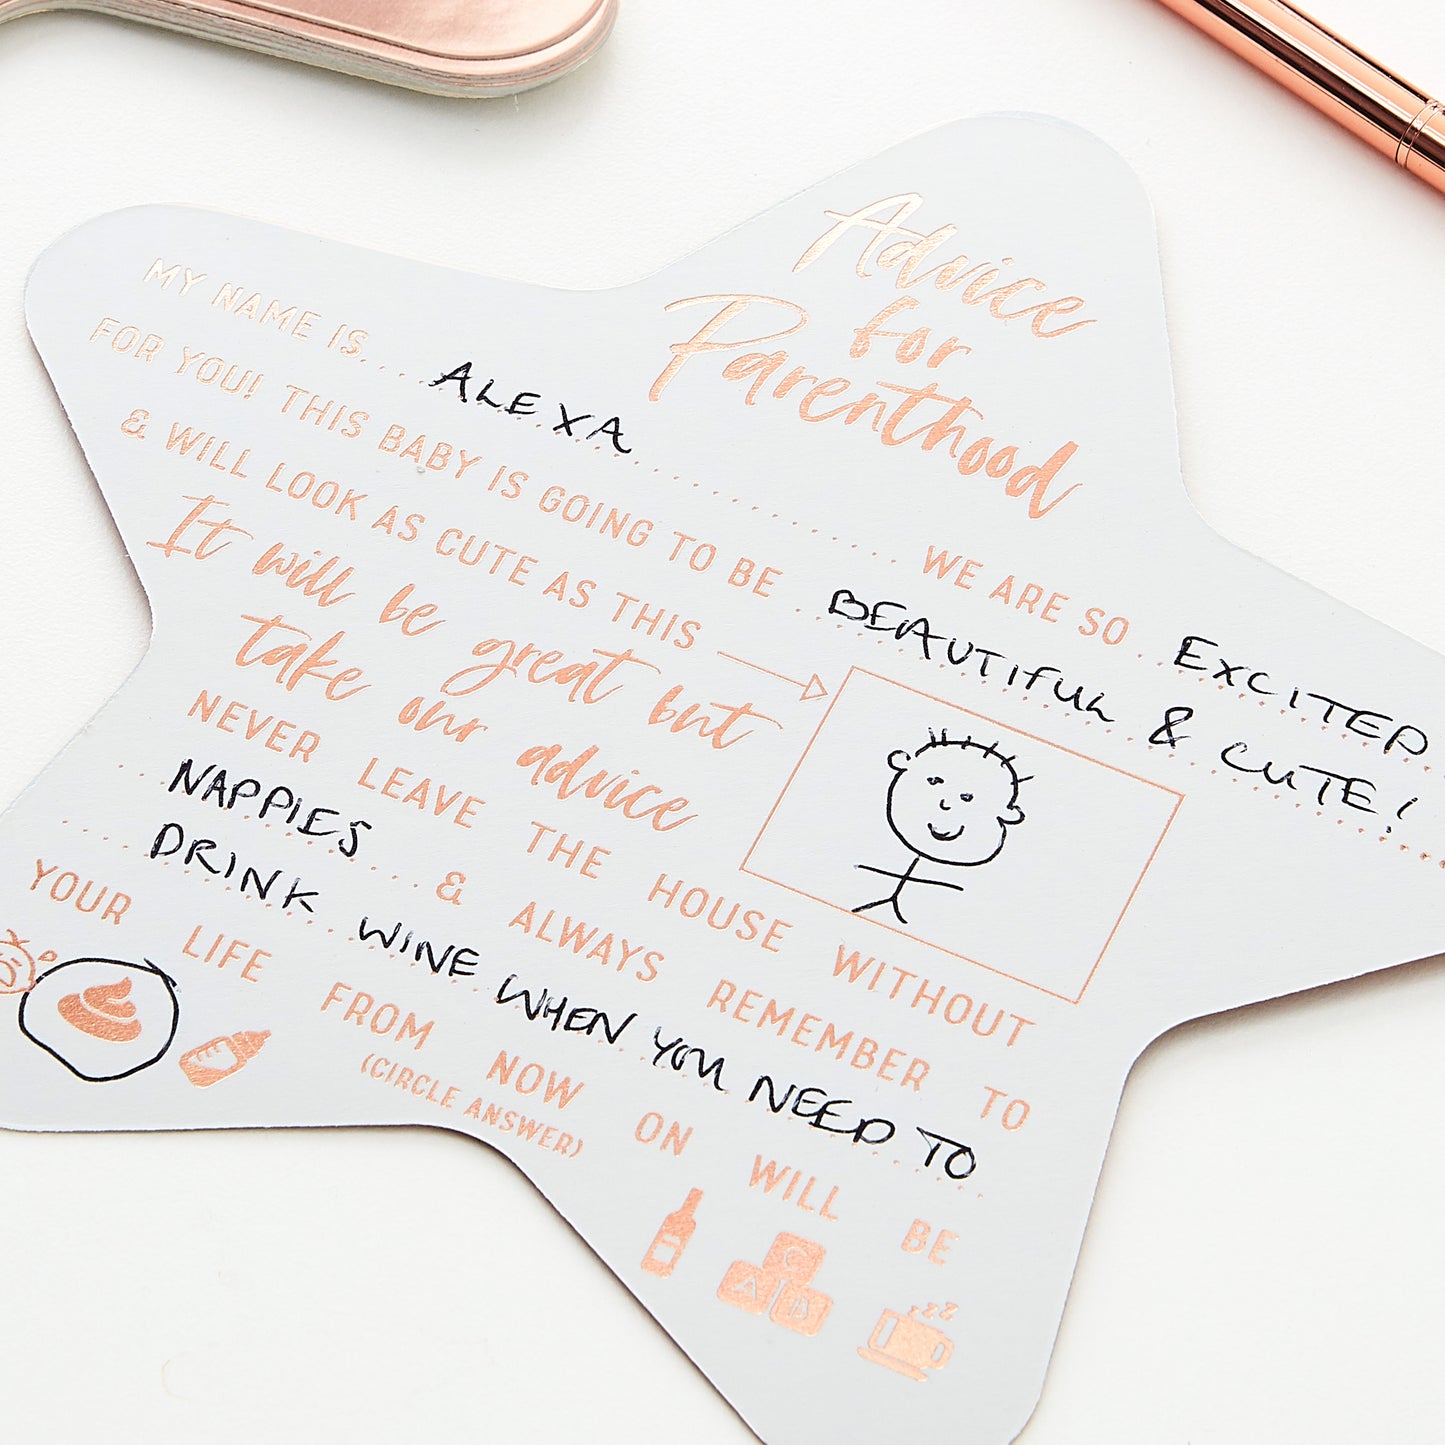 Advice
for
Parenthood
MY NAME IS.... ALEXA .... WE ARE SO ... EXCITED
FOR YOU! THIS BABY IS GOING TO BE . BEAUTIFUL & CUTE!
& WILL LOOK AS CUTE AS THIS
It will be great but
take our advice
NEVER LEAVE THE HOUSE WITHOUT
NAPPIES & ALWAYS REMEMBER TO
DRINK WINE WHEN YOU NEED TO
YOUR LIFE FROM NOW ON WILL BE
(CIRCLE ANSWER)
C
A B
zzz